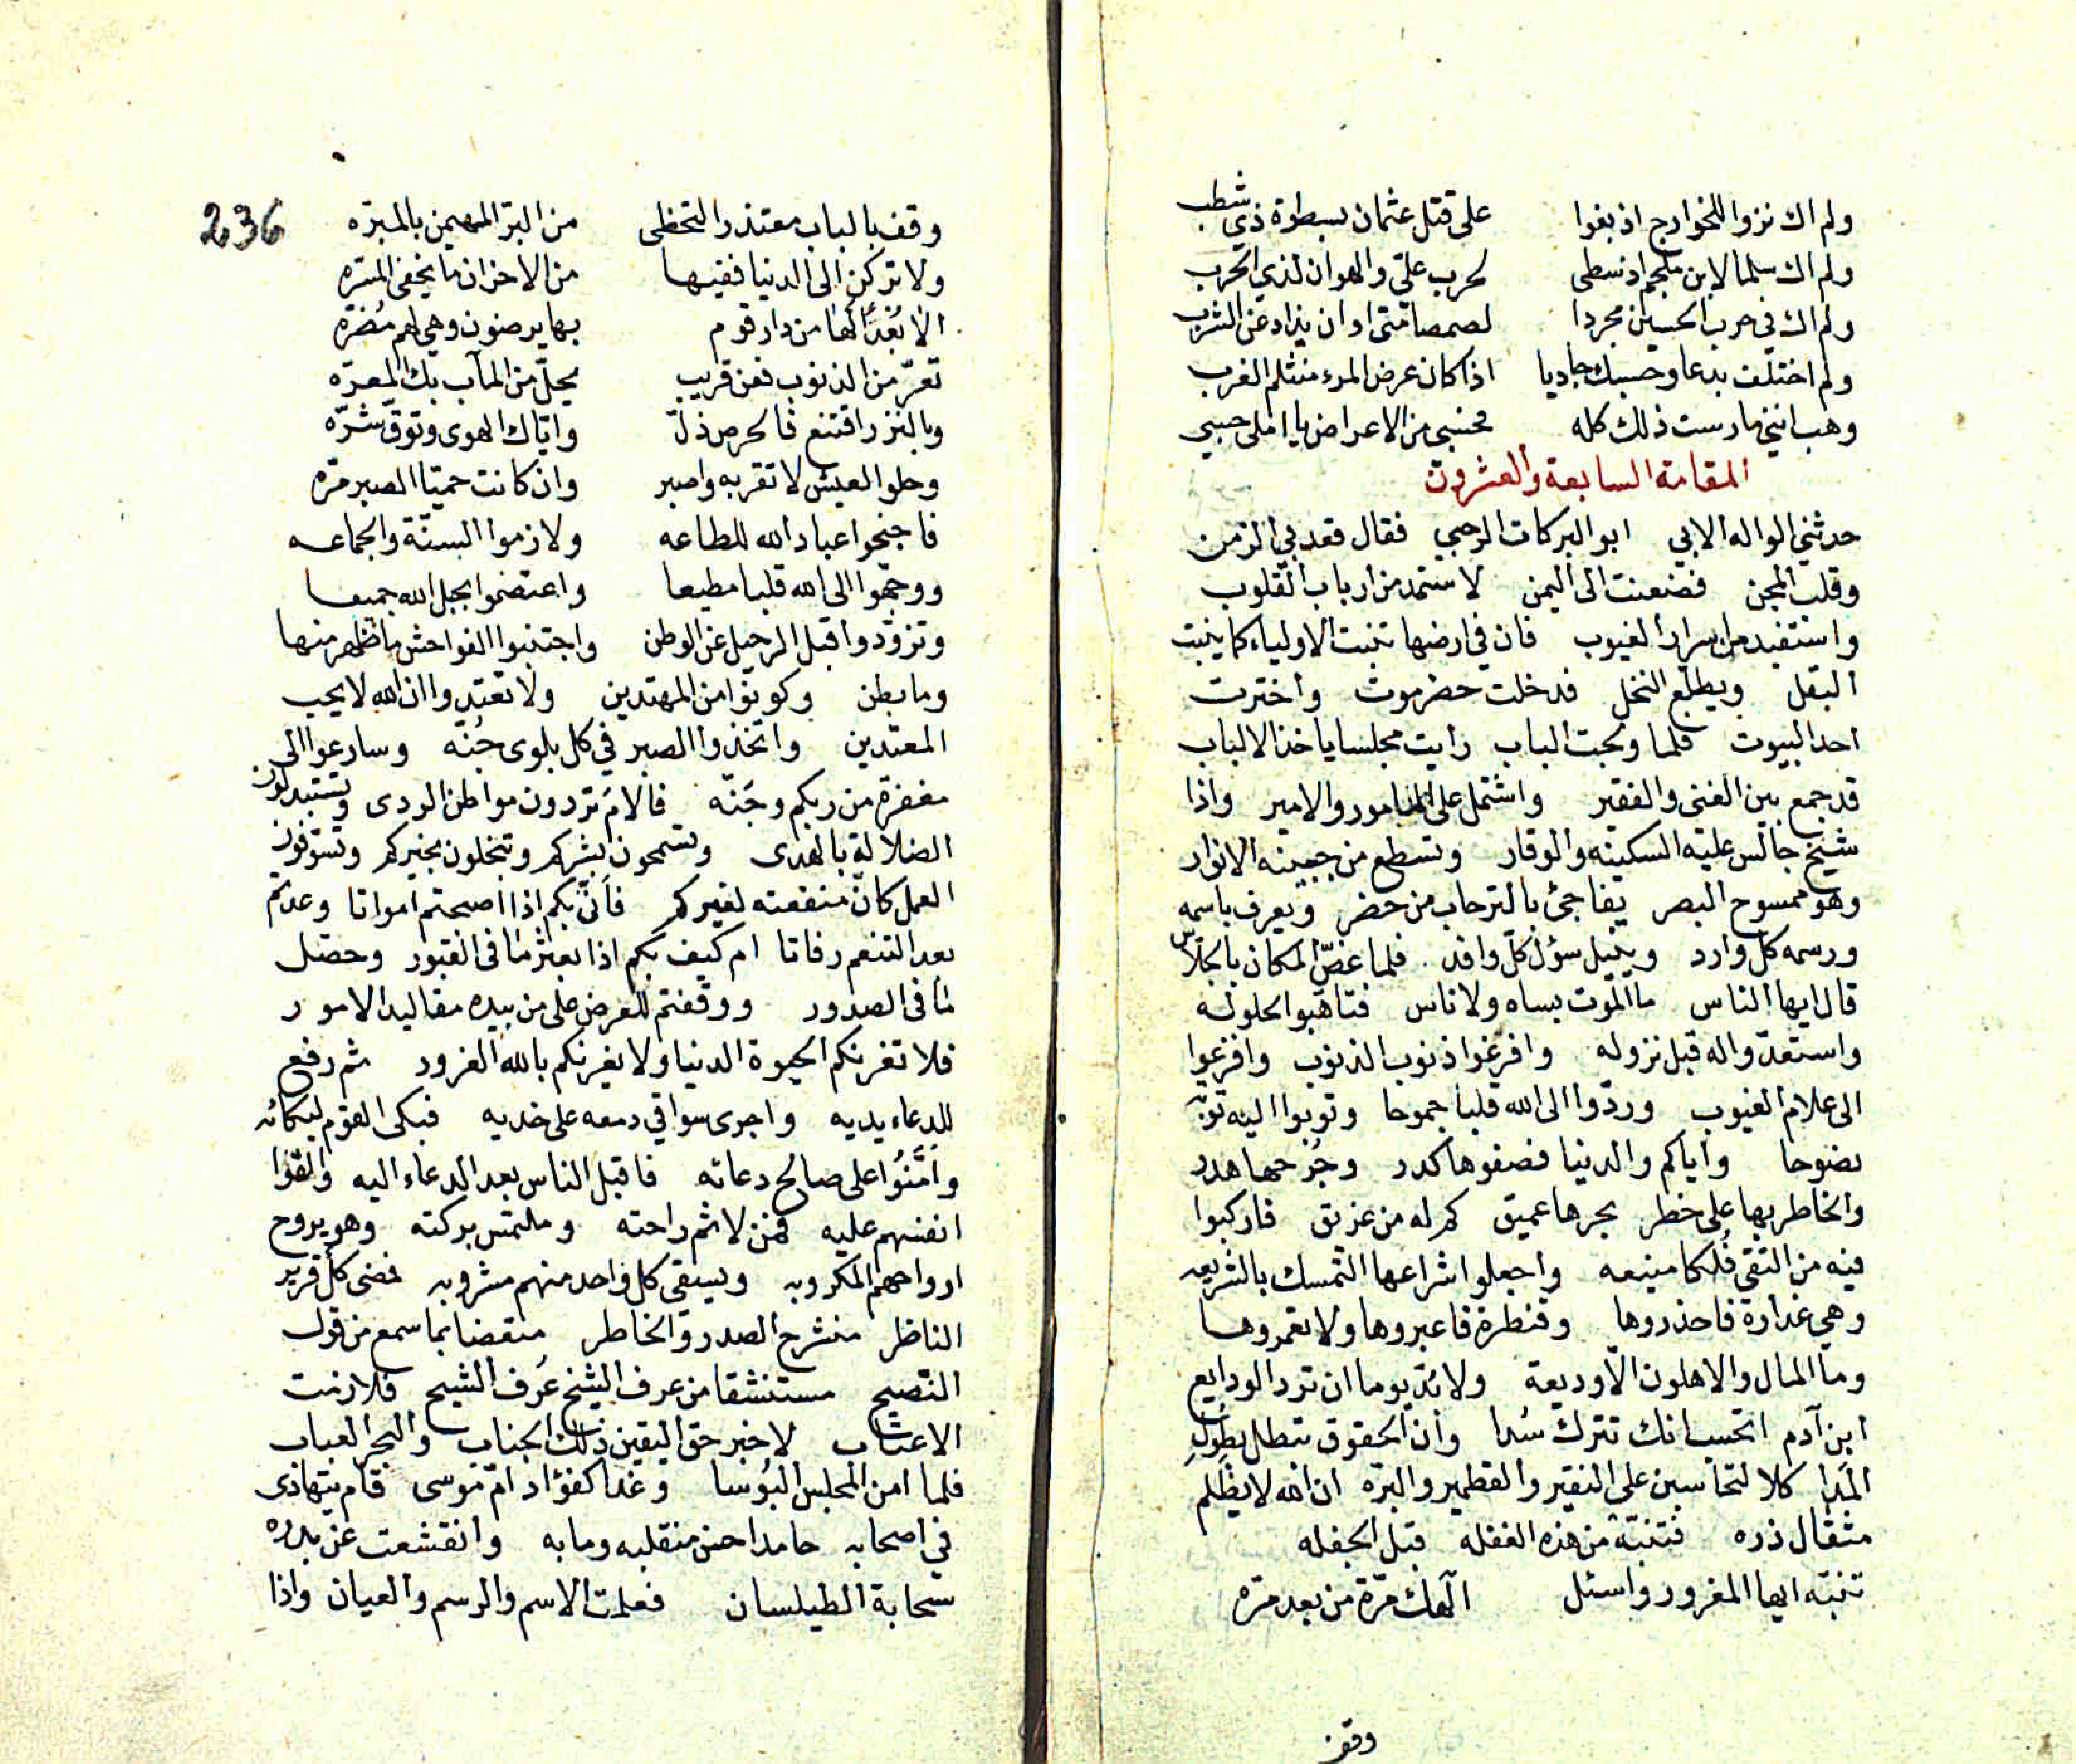 ولم اك نزوا للخوارج اذ بغوا على قتل عثمان بسطوة ذي شطب
ولم اك سلما لابن ملجم اذ سطى لحرب عليّ والهوان لذي الحرب
ولم اك في حرب الحسين مجردا لصمصامتي او ان يذاد عن الشرب
ولم اختلف بدعا وحسبك حاديا اذا كان عرض المرء منثلم الغرب
وهب انني مارست ذلك كله فحسبي من الاعراض يا املي حسبي
المقامة السابعة والعشرون
حدثني الواله الابي ابو البركات الرحبي فقال قعد بي الزمن
وقلب المجن فضعنت الى اليمن لاستمد من ارباب القلوب
واستفيد من اسرار الغيوب فان في ارضها تنبت الاولياء كما ينبت
البقل ويطلع النخل فدخلت حضرموت واخترت
احد البيوت فلما ولجت الباب رايت مجلسا ياخذ الالباب
قد جمع بين الغنى والفقير واشتمل على المامور والامير واذا
شيخ جالس عليه السكينه والوقار وتسطع من جبينه الانوار
وهو ممسوح البصر يفاجئ بالترحاب من حضر ويعرف باسمه
ورسمه كل وارد وينيل سؤل كل وافد فلما غصّ المكان بالجلاس
قال ايها الناس ما الموت بساه ولا ناس فتاهبوا لحلوله
واستعدّوا له قبل نزوله وافرغوا ذنوب الذنوب وافزعوا
الى علام الغيوب وردّوا الى الله قلبا جموحا وتوبوا اليه توبة
نصوحا واياكم والدنيا فصفوها كدر وجُرحها هدر
والخاطر بها على خطر بحرها عميق كم له من غريق فاركبوا
فيه من التقى فُلكا منيعه واجعلوا شراعها التمسك بالشريعه
وهي غدارة فاحذروها وقنطرة فاعبروها ولا تعمروها
وما المال والاهلون الا وديعة ولا بدّ يوما ان ترد الودايع
ابن آدم اتحسب انك تترك سُدا وان الحقوق تبطل بطول
المَدَا كلا لتحاسبن على النقير والقطمير والبرّه ان الله لا يظلم
مثقال ذره فتنبّه من هذه الغفله قبل الجفله
تنبّه ايها المغرور واسئل الٓهك مرّة من بعد مرّه
وقف
236
وقف بالباب معتذرا لتحظى من البرّ المهيمن بالمبرّه
ولا تركن الى الدنيا ففيها من الاحزان ما يخفي المسرّه
الا بُعْدًا لها من دار قوم بها يرضون وهي لهم مُضرّه
تعرّ من الذنوب فعن قريب يحلّ من المآب بك المعرّه
وبالنزر اقتنع فالحرص ذلّ واياك الهوى وتوقّ شرّه
وحلو العيش لا تقربه واصبر وان كانت حميّا الصبر مرّه
فاجنحوا عباد الله للطاعه ولازموا السنّة والجماعه
ووجّهوا الى الله قلبا مطيعا واعتصموا بحبل الله جميعا
وتزوّدوا قبل الرحيل عن الوطن واجتنبوا الفواحش ما ظهر منها
وما بطن وكونوا من المهتدين ولا تعتدوا ان الله لا يحب
المعتدين واتخذوا الصبر في كل بلوى جُنّه وسارعوا الى
مغفرة من ربكم وجَنّه فالامَ تردون مواطن الردى وتستبدلون
الضلالة بالهدى وتسمحون بشركم وتبخلون بخيركم وتسوّفون
العمل كانّ منفعته لغيركم فانّى بكم اذا اصبحتم امواتا وعدتم
بعد التنعم رفاتا ام كيف بكم اذا بعثر ما فى القبور وحصّل
ما فى الصدور ووقفتم للعرض على من بيده مقاليد الامور
فلا تغرنكم الحيوة الدنيا ولا يغرنكم بالله الغرور ثم رفع
للدعاء يديه واجرى سواقي دمعه على خديه فبكى القوم لبكائه
وامَّنُوا على صالح دعائه فاقبل الناس بعد الدعاء اليه والقوا
انفسهم عليه فمن لاثم راحته وملتمس بركته وهو يروح
ارواحهم المكروبه ويسقى كل واحد منهم مشروبه فمضى كل قرير
الناظر منشرح الصدر والخاطر متعضا بما سمع من قول
النصيح مستنشقا من عرف الشيخ عَرف الشيح فلازمت
الاعتاب لاخبر حق اليقين ذلك الجناب والبحر العباب
فلما امن المجلس البُوسا وغدا كفؤاد امّ موسى قام يتهادى
في اصحابه حامدا حسن منقلبه ومابه وانقشعت عن بدره
سحابة الطيلسان فعلمت الاسم والرسم والعيان واذا